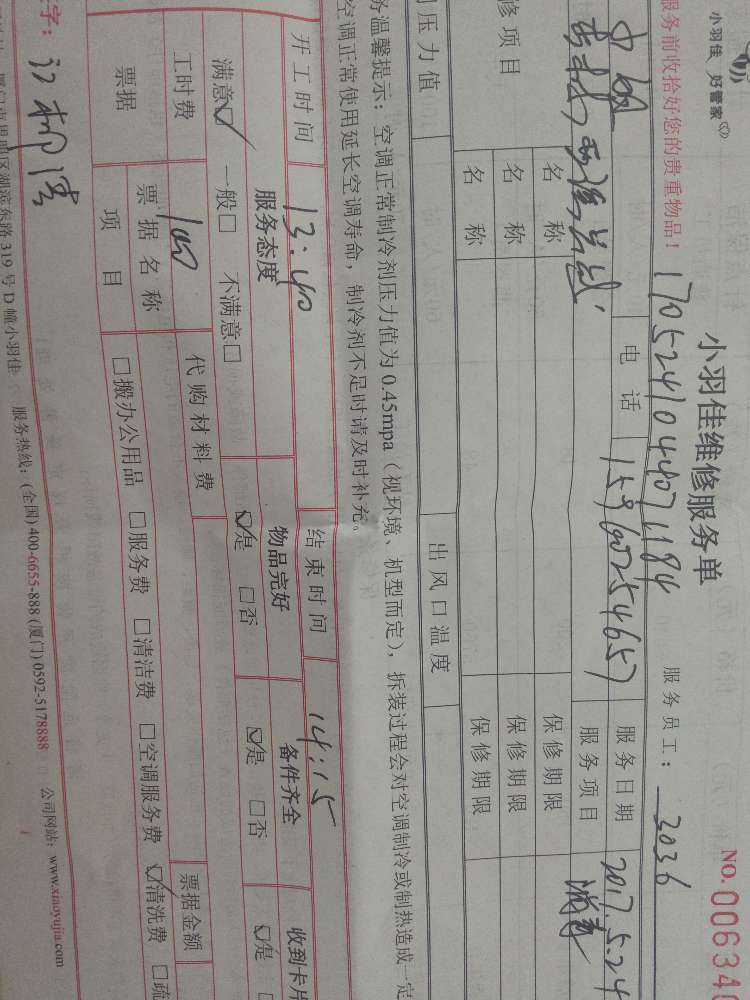 小羽佳 好管家
小羽佳维修服务单
NO. 006346
服务前收拾好您的贵重物品!
1705241044071184
服务员工: 3036
电话 15960254657 服务日期 2017.5.24
服务项目 消毒
修项目
名称 保修期限
名称 保修期限
名称 保修期限
压力值 出风口温度
务温馨提示: 空调正常制冷剂压力值为 0.45mpa(视环境、机型而定), 拆装过程会对空调制冷或制热造成一定
空调正常使用延长空调寿命, 制冷剂不足时请及时补充。
开工时间 13:40 结束时间 14:15
服务态度 物品完好 备件齐全 收到卡片
满意☑ 一般□ 不满意□ ☑是 □否 ☑是 □否 ☑是
工时费 100 代购材料费 票据金额
票据 票据名称 □搬办公用品 □服务费 □清洁费 □空调服务费 ☑清洗费 □疏
项目
字:
湖滨东路 319 号 D 幢小羽佳 服务热线: (全国) 400-6655-888 (厦门) 0592-5178888 公司网站: www.xiaoyujia.com